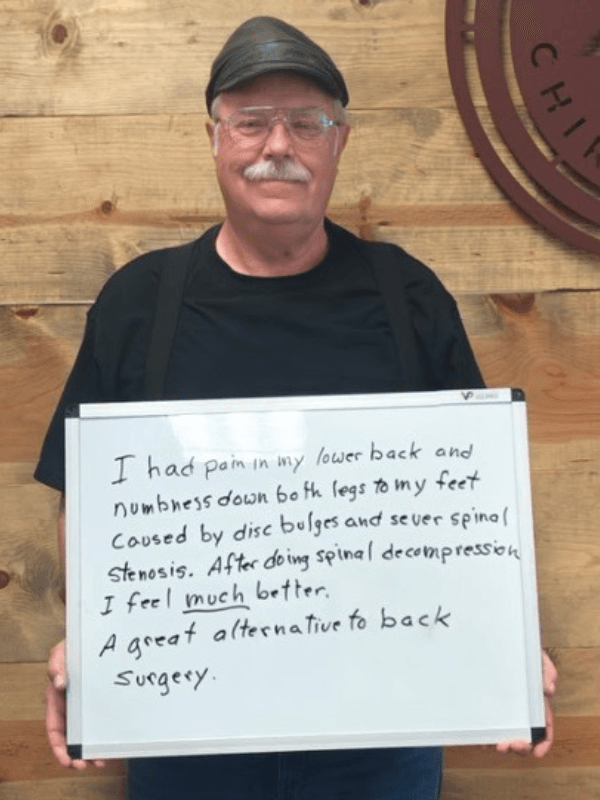 CHIR
VP
I had pain in my lower back and
numbness down both legs to my feet
caused by disc bulges and sever spinal
stenosis. After doing spinal decompression
I feel much better.
A great alternative to back
surgery.